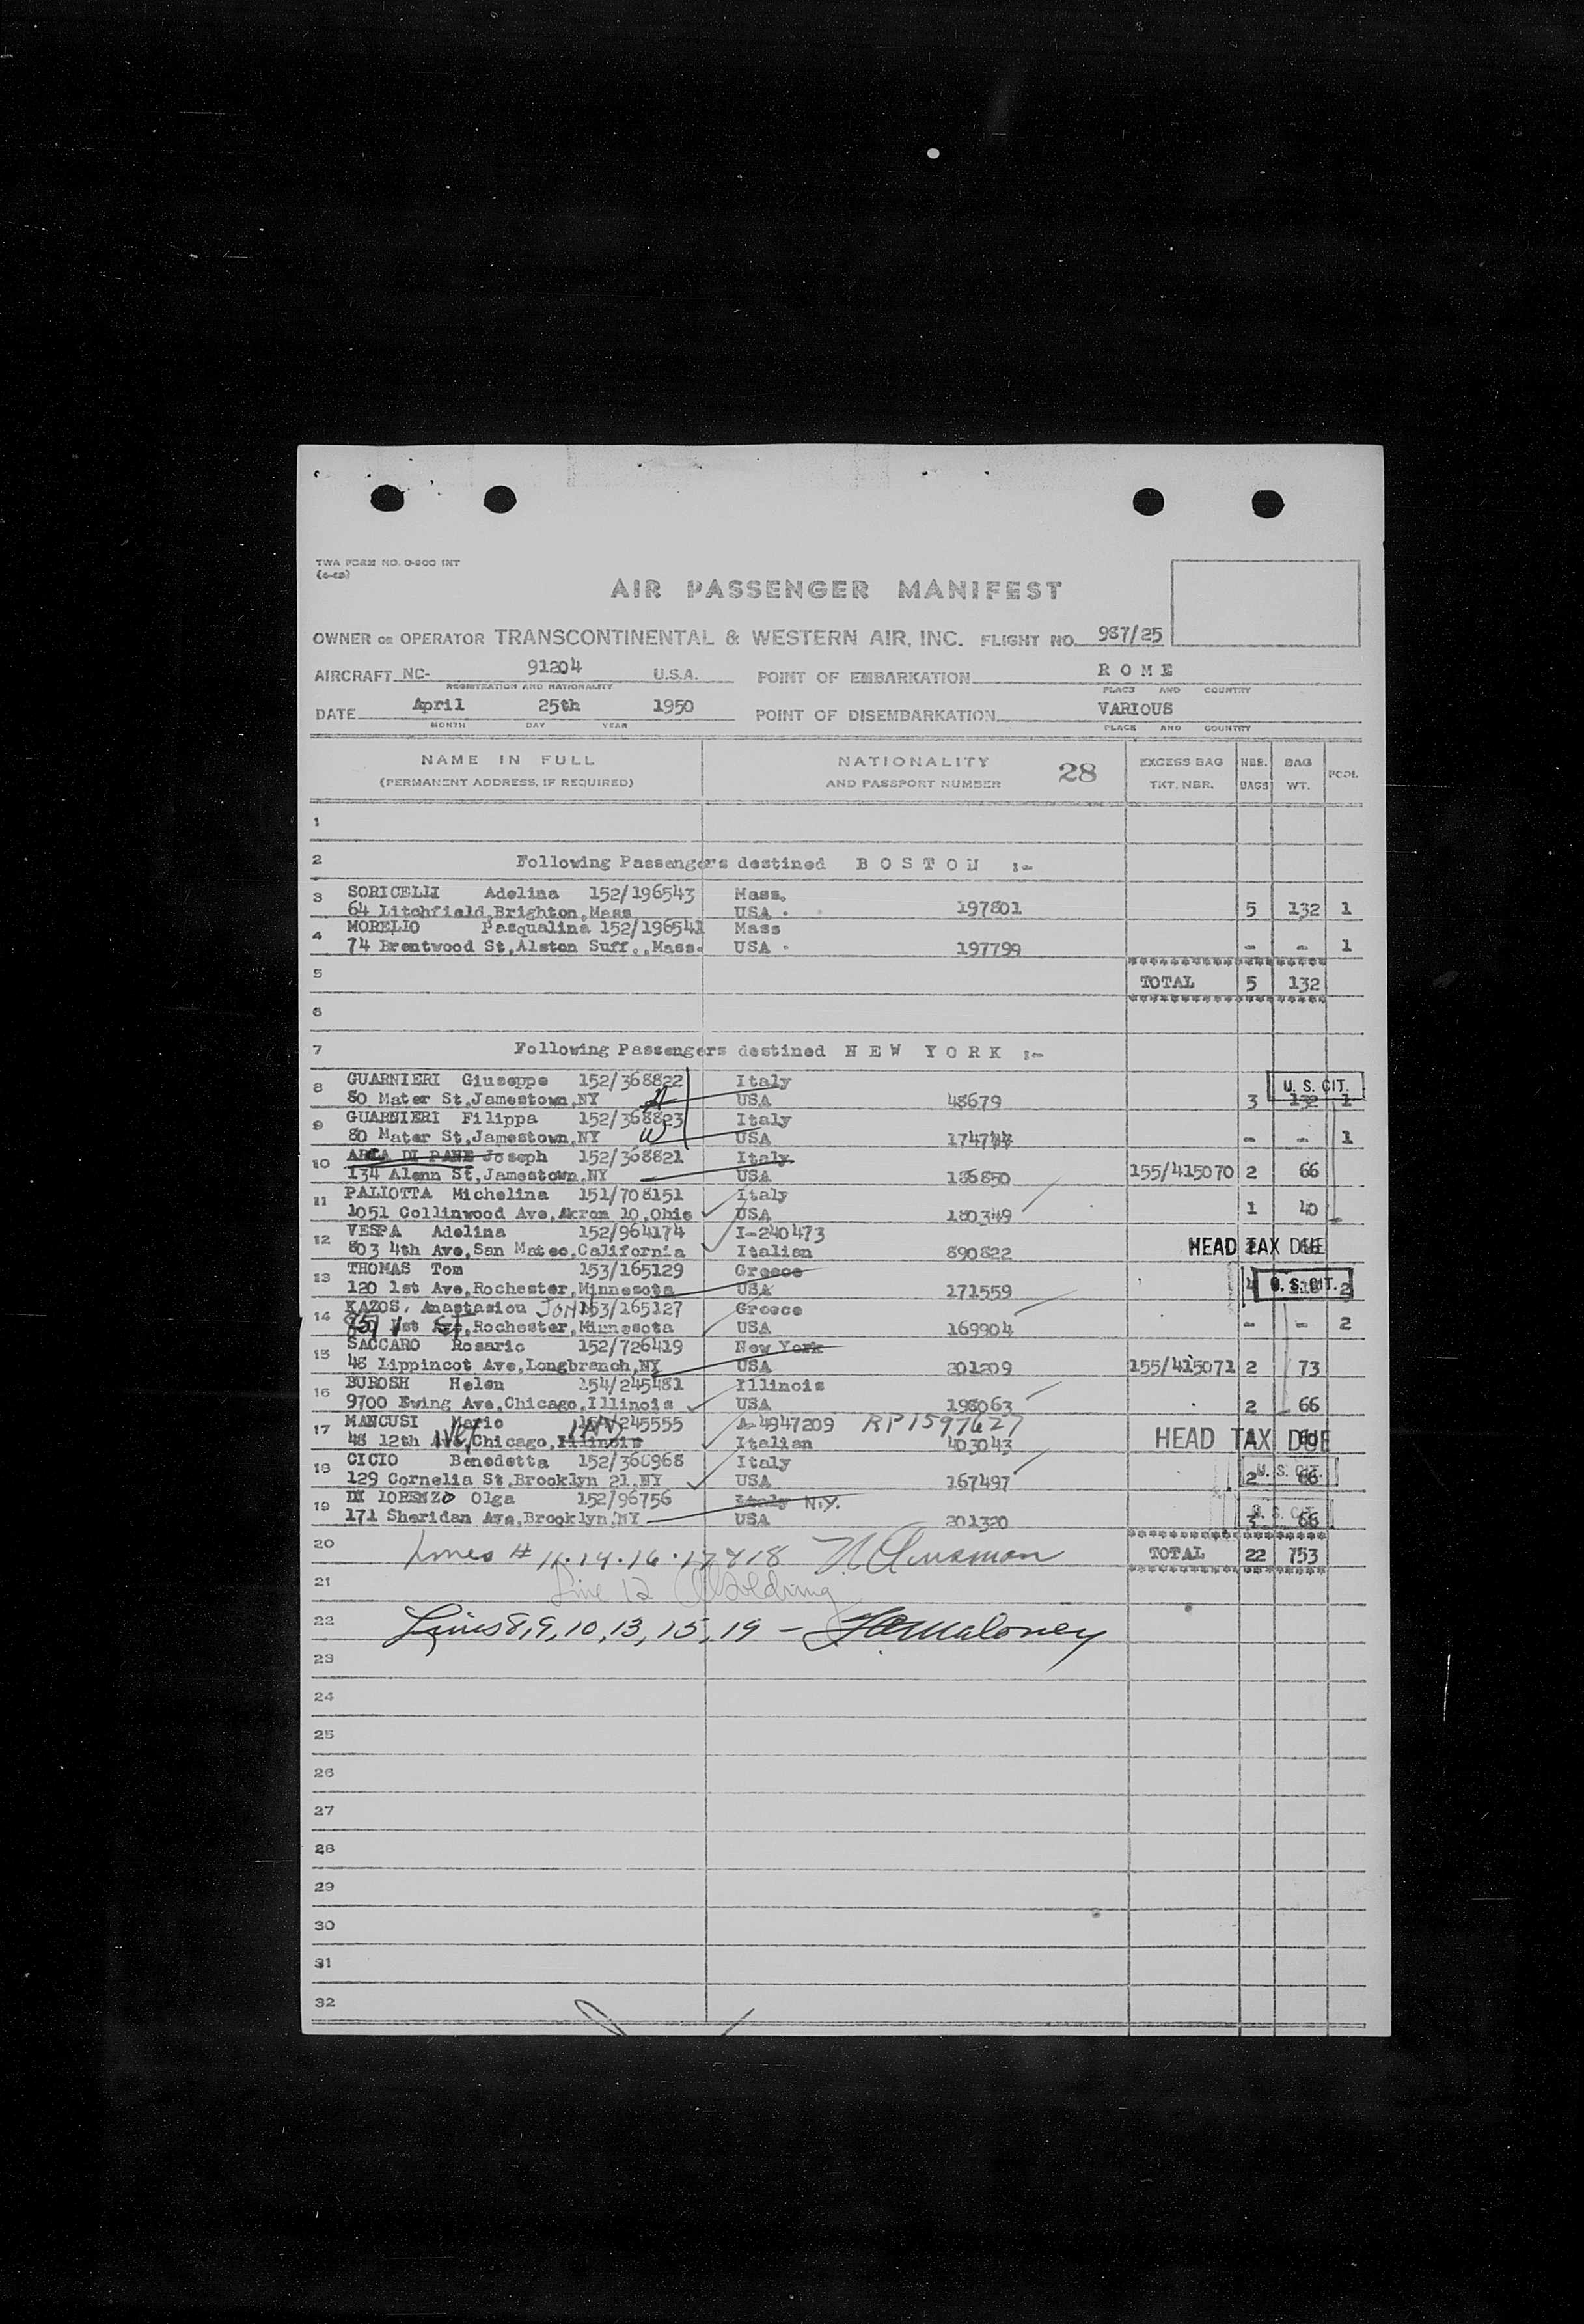 TWA FORM NO. O-800 INT
AIR PASSENGER MANIFEST
OWNER OR OPERATOR TRANSCONTINENTAL & WESTERN AIR, INC. FLIGHT NO. 987/25
AIRCRAFT NC- 91204 U.S.A. POINT OF EMBARKATION ROME
REGISTRATION AND NATIONALITY PLACE AND COUNTRY
DATE April 25th 1950 POINT OF DISEMBARKATION VARIOUS
MONTH DAY YEAR PLACE AND COUNTRY
NAME IN FULL NATIONALITY 28 EXCESS BAG NBR. BAG
(PERMANENT ADDRESS, IF REQUIRED) AND PASSPORT NUMBER TKT. NBR. BAGS WT. POOL
1
2 Following Passengers destined BOSTON :-
3 SORICELLI Adelina 152/196543 Mass.
64 Litchfield,Brighton,Mass USA 197801 5 132 1
4 MORELIO Pasqualina 152/196541 Mass
74 Brentwood St,Alston Suff.,Mass. USA 197799 - - 1
5 TOTAL 5 132
6
7 Following Passengers destined NEW YORK :-
8 GUARNIERI Giuseppe 152/368822 Italy U. S. CIT.
80 Mater St,Jamestown,NY USA 48679 3 132 1
9 GUARNIERI Filippa 152/368823 Italy
80 Mater St,Jamestown,NY W USA - - 1
10 DI PANE Joseph 152/368821 Italy
134 Alenn St,Jamestown,NY USA 186850 155/415070 2 66
11 PALIOTTA Michelina 151/708151 Italy
1051 Collinwood Ave,Akron 10,Ohio USA 180349 1 40
12 VESPA Adelina 152/964174 I-240473
803 4th Ave,San Mateo,California Italian 890822 HEAD TAX DUE
13 THOMAS Tom 153/165129 Greece
120 1st Ave,Rochester,Minnesota USA 171559 4 U. S. CIT. 2
14 KAZOS, Anastasiou JOHN 153/165127 Greece
1st Rochester,Minnesota USA 169904 - - 2
15 SACCARO Rosario 152/726419 New York
48 Lippincot Ave,Longbranch,NY USA 201209 155/415071 2 73
16 BUROSH Helen 154/245481 Illinois
9700 Ewing Ave,Chicago,Illinois USA 198063 2 66
17 MANCUSI Mario 245555 A-4947209 RP1597627
48 12th Ave,Chicago,Illinois Italian 403043 HEAD TAX DUE
18 CICIO Benedetta 152/360968 Italy
129 Cornelia St,Brooklyn 21,NY USA 167497 2 U. S. CIT. 66
19 DI LORENZO Olga 152/96756 Italy N.Y.
171 Sheridan Ave,Brooklyn,NY USA 201320 U. S. CIT. 66
20 Lines # 11.14.16.17 & 18 TOTAL 22 753
21 Line 12
22 Lines 8, 9, 10, 13, 15, 19 - Maloney
23
24
25
26
27
28
29
30
31
32